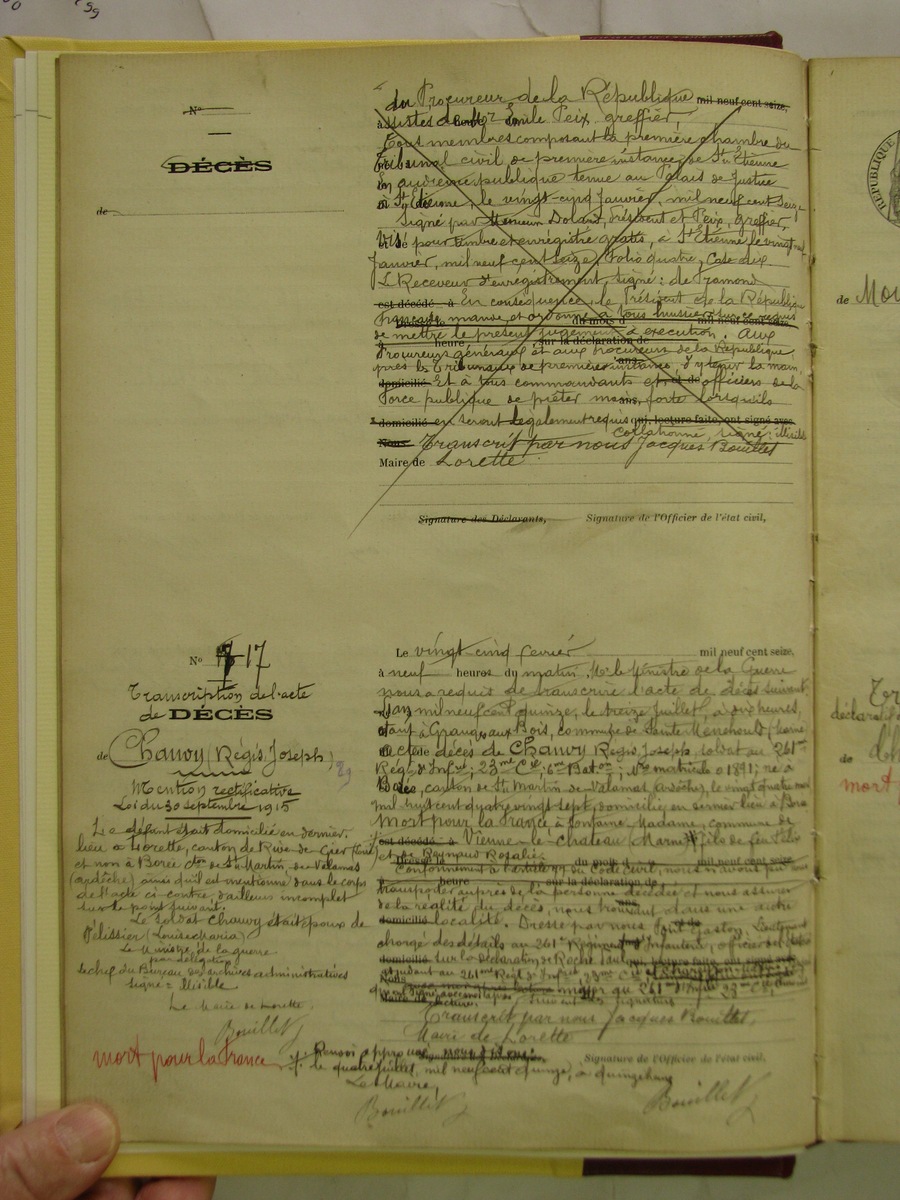 N°
DÉCÈS
de
du Procureur de la République mil neuf cent seize,
assistés de Emile Peix, greffier,
Tous membres composant la première chambre du
Tribunal civil de première instance, de St Etienne
audience publique tenue au Palais de Justice
à St Etienne, le vingt-cinq Janvier, mil neuf cent seize
Signé par Monsieur Dolard, Président et Peix, greffier,
Visé pour timbre et enregistré gratis, à St Etienne le vingt
Janvier, mil neuf cent seize, Folio quatre, Case dix
Le Receveur d'enregistrement, signé : de Framond
est décédé à En conséquence, le Président de la République
française, mande et ordonne, à tous huissiers sur ce requis
du mois d mil neuf cent seize
de mettre le présent jugement à exécution. Aux
heure sur la déclaration de
Procureurs généraux et aux procureurs de la République
près les Tribunaux de première instance, d'y tenir la main,
domicilié Et à tous commandants et officiers de la
Force publique de prêter main forte lorsqu'ils
domicilié en seront légalement requis qui, lecture faite, ont signé avec
collationné, signé : illisible
Nous Transcrit par nous Jacques Bouillet
Maire de Lorette
Signature des Déclarants, Signature de l'Officier de l'état civil,
N° 17
Transcription de l'acte
de DÉCÈS
de Chauvy (Régis Joseph)
29
Mention rectificative
Loi du 30 septembre 1915
Le défunt était domicilié en dernier
lieu à Lorette, canton de Rive de Gier (Loire)
et non à Borée cton de St Martin, de Valamas
(ardèche) ainsi qu'il est mentionné dans le corps
de l'acte ci-contre, d'ailleurs incomplet
sur le point suivant.
Le soldat Chauvy était époux de
Pélissier (Louise Maria)
Le Ministre de la guerre
par délégation
le chef du Bureau des archives administratives
signé = illisible
Le Maire de Lorette
Bouillet
mort pour la france
Le vingt cinq fevrier mil neuf cent seize,
à neuf heures du matin, Mr le Ministre de la Guerre
nous a requis de transcrire l'acte de décès suivant
L'an mil neuf cent quinze, le treize Juillet, à dix heures,
étant à Grange aux Bois, commune de Sainte Menehould, Marne
acte de décès de Chauvy Régis Joseph, soldat au 261me
Régt d'Infrie; 23me Cie; 6me Baton; No matricule 01891; né à
Borée, canton de St Martin de Valamas, Ardèche, le vingt quatre
mil huit cent quatre vingt sept, domicilié en dernier lieu à Borée
Mort pour la France à Fontaine-Madame, commune de
est décédé à Vienne-le-Chateau (Marne) fils de feu Félix
et de Reynaud Rosalie.
du mois d mil neuf cent seize
Conformément à l'article 77 du Code civil, nous n'avons pu nous
heure sur la déclaration de
transporter auprès de la personne décédée et nous assurer
de la réalité du décès, nous trouvant dans une autre
domicilié localité. Dressé par nous Gaston, Lieutenant
chargé des détails au 261e Régiment Infanterie, officier de
domicilié sur la déclaration de Roche
adjudant au 261me Régt de Infrie, 23me Cie
major au 261me d'Infrie 23me Cie,
lecture. Suivent les signatures
Transcrit par nous Jacques Bouillet,
Maire de Lorette
Renvoi approuvé Signature de l'Officier de l'état civil.
le quatre juillet, mil neuf cent quinze, à quinze heures
Le Maire,
Bouillet
Bouillet
RÉPUBLIQUE
de Mou
déclarat
de
mort